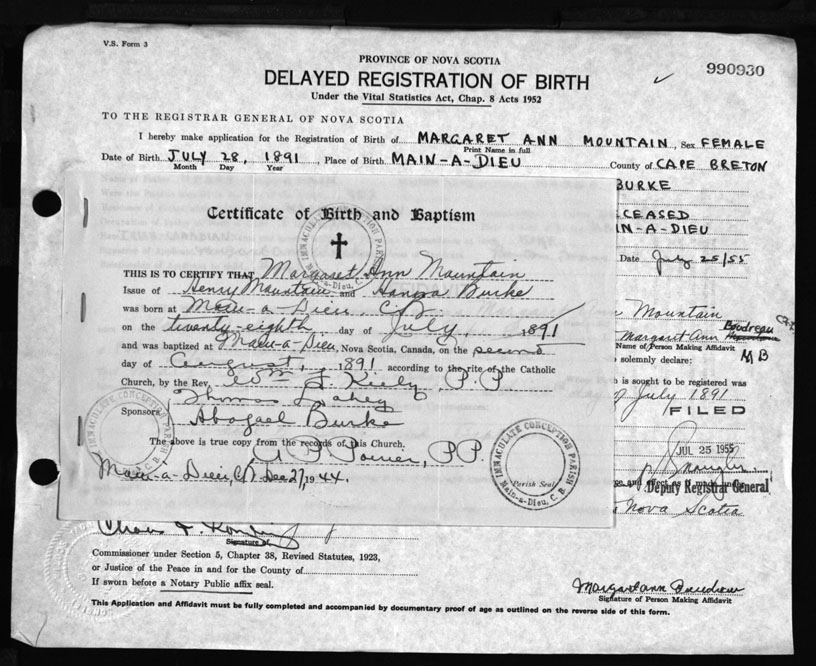 V.S. Form 3
PROVINCE OF NOVA SCOTIA
990930
DELAYED REGISTRATION OF BIRTH
Under the Vital Statistics Act, Chap. 8 Acts 1952
TO THE REGISTRAR GENERAL OF NOVA SCOTIA
I hereby make application for the Registration of Birth of MARGARET ANN MOUNTAIN, Sex FEMALE
Print Name in full
Date of Birth JULY 28, 1891, Place of Birth MAIN-A-DIEU County of CAPE BRETON
Month Day Year
BURKE
CEASED
IN-A-DIEU
Date July 25/55
Certificate of Birth and Baptism
IMMACULATE CONCEPTION PARISH
THIS IS TO CERTIFY THAT Margaret Ann Mountain
Issue of Henry Mountain and Burke
was born at Main-a-Dieu, C.B.
on the twenty-eighth day of July, 1891
and was baptized at Main-a-Dieu, Nova Scotia, Canada, on the second
day of August, 1891 according to the rite of the Catholic
Church, by the Rev. Wm Kiely, P.P.
Sponsors Thomas
Abogael Burke
The above is true copy from the records of this Church.
P.P.
Main-à-Dieu, CB Dec 27, 1944.
IMMACULATE CONCEPTION PARISH
Parish Seal
Main-a-Dieu, C. B.
IMMACULATE CONCEPTION PARISH
C. B.
Mountain
Margaret Ann Boudreau
Name of Person Making Affidavit
MB
solemnly declare:
h is sought to be registered was
July 1891
FILED
JUL 25 1955
Deputy Registrar General
Nova Scotia
Signature of
Commissioner under Section 5, Chapter 38, Revised Statutes, 1923,
or Justice of the Peace in and for the County of
If sworn before a Notary Public affix seal.
Margaret ann Boudreau
Signature of Person Making Affidavit
This Application and Affidavit must be fully completed and accompanied by documentary proof of age as outlined on the reverse side of this form.